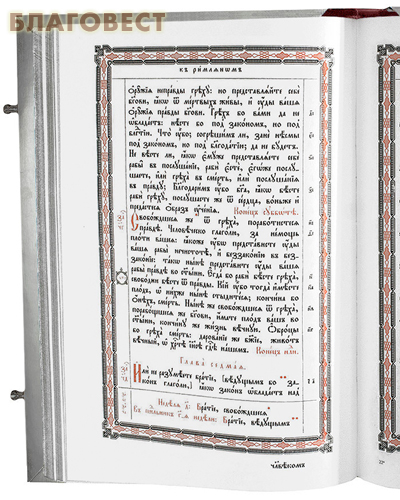 БЛАГОВЕСТ
къ ри́млѧнѡмъ
ѻрꙋ̑жїѧ непра́вды грѣхꙋ̀: но представлѧ́йте себѐ
бг҃ови, ꙗ҆́кѡ ѿ ме́ртвыхъ жи̑вы, и҆ ᲂу҆́ды ва́шѧ
ѻрꙋ̑жїѧ пра́вды бг҃ови. Грѣ́хъ бо ва́ми да не
ѡ҆блада́етъ: нѣ́сте бо под̾ зако́номъ, но под̾
блгⷣтїю. Что̀ ᲂу҆̀бо; согрѣши́мъ ли, занѐ нѣ́смы
под̾ зако́номъ, но под̾ блгⷣтїю; да не бꙋ́детъ.
Не вѣ́сте ли, ꙗ҆́кѡ є҆мꙋ́же представлѧ́ете себѐ
рабы̑ въ послꙋша́нїе, рабѝ є҆стѐ, є҆гѡ́же послꙋ́-
шаете, и҆лѝ грѣха̀ въ сме́рть, и҆лѝ послꙋша́нїѧ
въ пра́вдꙋ; Благодари́мъ ᲂу҆̀бо бг҃а, ꙗ҆́кѡ бѣ́сте
рабѝ грѣхꙋ̀, послꙋ́шасте же ѿ се́рдца, во́ньже и҆
преда́стесѧ ѻ҆́бразъ ᲂу҆че́нїѧ. Коне́цъ сꙋббѡ́тѣ.
Свобо́ждшесѧ же ѿ грѣха̀, порабо́тистесѧ
пра́вдѣ. Человѣ́ческо глаго́лю, за не́мощь
пло́ти ва́шеѧ: ꙗ҆́коже бо предста́висте ᲂу҆́ды
ва́шѧ рабы̑ нечистотѣ̀, и҆ беззако́нїю въ без-
зако́нїе: та́кѡ нн҃ѣ предста́вите ᲂу҆́ды ва́шѧ
рабы̑ пра́вдѣ во ст҃ы́ню. Є҆гда̀ бо рабѝ бѣ́сте грѣха̀,
свобо́дни бѣ́сте ѿ пра́вды. Кі́й ᲂу҆̀бо тогда̀ и҆мѣ́сте
пло́дъ, ѡ҆ ни́хже нн҃ѣ стыдите́сѧ; кончи́на бо
ѻ҆нѣ́хъ, сме́рть. Нн҃ѣ же свобо́ждшесѧ ѿ грѣха̀,
порабо́щшесѧ же бг҃ови, и҆́мате пло́дъ ва́шъ во
ст҃ы́ню, кончи́нꙋ же жи́знь вѣ́чнꙋю. Ѡ҆бро́цы
бо грѣха̀ сме́рть: дарова́нїе же бж҃їе, живо́тъ
вѣ́чный, ѡ҆ хрⷭ҇тѣ̀ і҆и҃сѣ гдⷭ҇ѣ на́шемъ. Коне́цъ нлⷣи.
Глава̀ седма́ѧ.
И҆лѝ не разꙋмѣ́ете бра́тїе, [вѣ́дꙋщымъ бо за-
ко́нъ глаго́лю,] ꙗ҆́кѡ зако́нъ ѡ҆блада́етъ над̾
Недѣ́лѧ д҃: Бра́тїе, свобо́ждшесѧ
Бра́тїе, вѣ́дꙋщымъ
чл҃вѣ́комъ